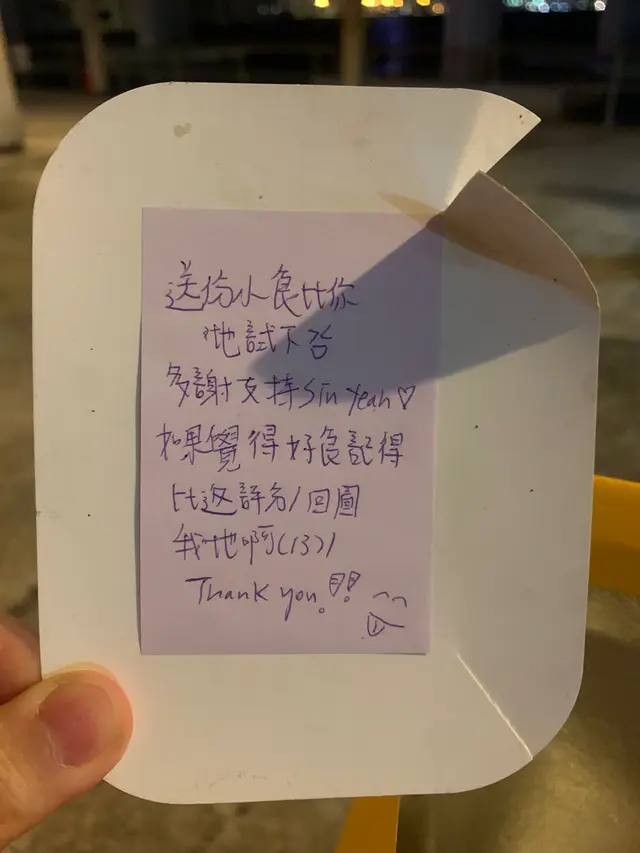 送份小食比你
哋試下
多謝支持Sin Yeah♡
如果覺得好食記得
比返評分/回圖
我哋啊(13)/
Thank you!!